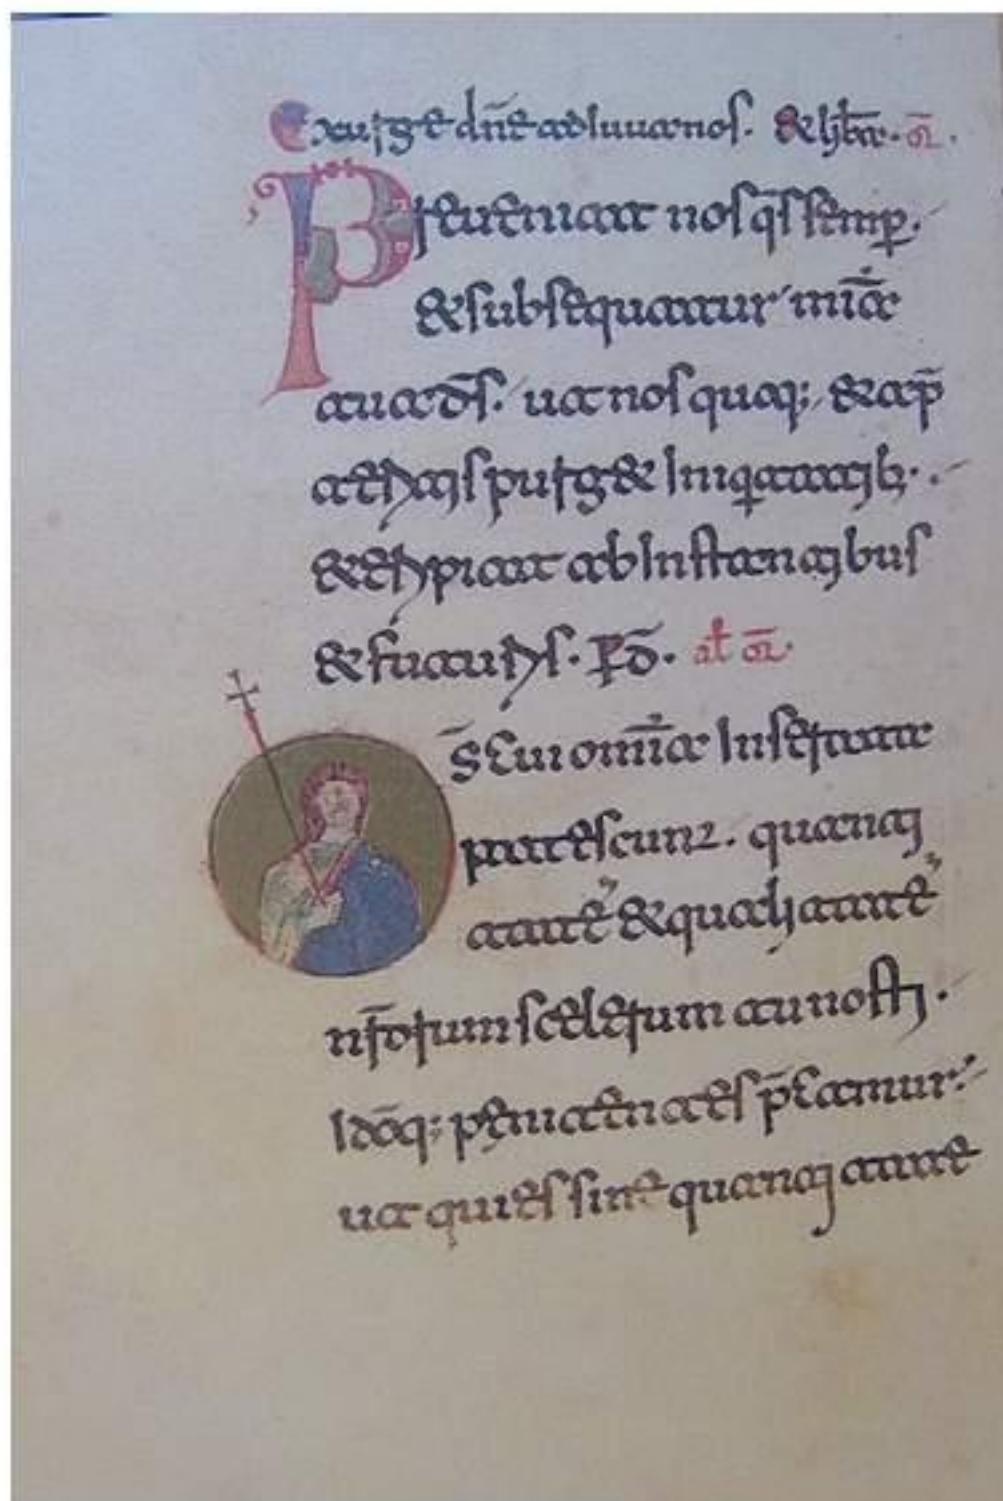 Exurge dn̄e adiuua nos. & lib̄a. or̄.
Preueniat nos q̄s semp̲.
& subsequatur mīa
tua d̄s. ut nos quoq; & a p̄
teritis purg& Iniq̲tatib;.
& expiat ab Instantibus
& futuris. P dō. al̄ or̄.
D̄s cui omīa Inserata
patescunt. quanti
tate & qualitate
nr̄orum scelerum tu nosti.
Idōq; penitentes p̄camur.
ut qui es sine quantitate